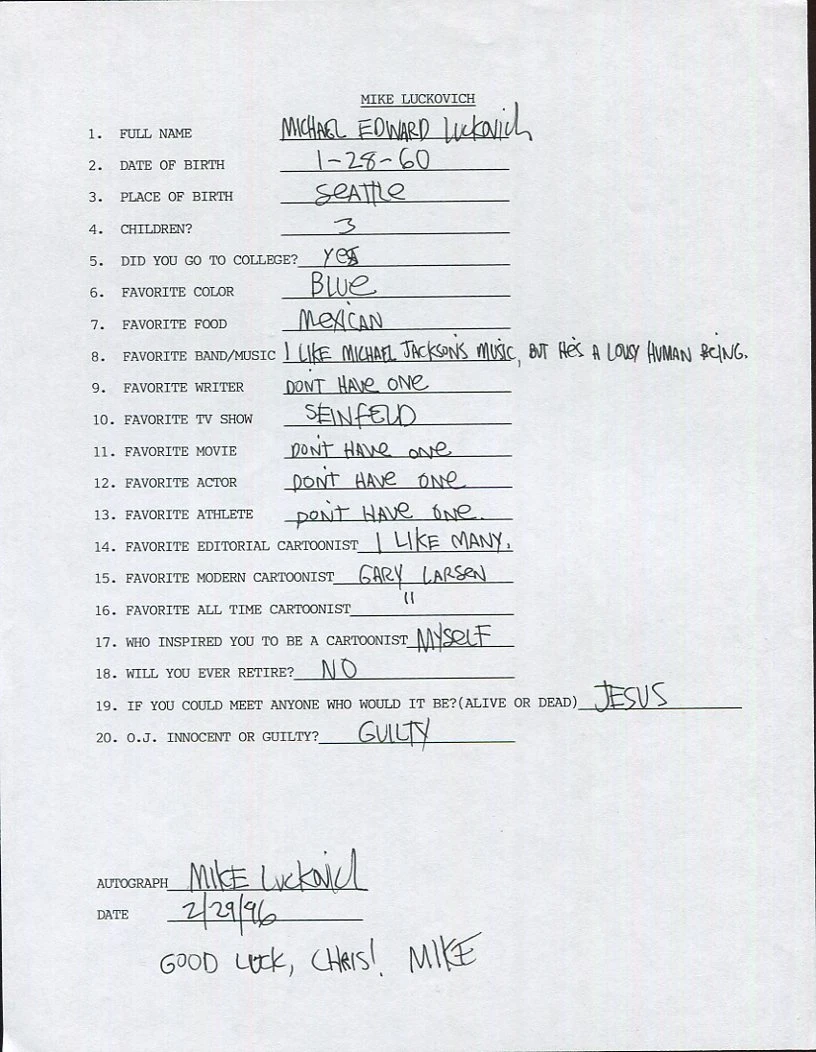 MIKE LUCKOVICH
1. FULL NAME MICHAEL EDWARD LUCKOVICH
2. DATE OF BIRTH 1-28-60
3. PLACE OF BIRTH SEATTLE
4. CHILDREN? 3
5. DID YOU GO TO COLLEGE? YES
6. FAVORITE COLOR BLUE
7. FAVORITE FOOD MEXICAN
8. FAVORITE BAND/MUSIC I LIKE MICHAEL JACKSON'S MUSIC, BUT HE'S A LOUSY HUMAN BEING.
9. FAVORITE WRITER DON'T HAVE ONE
10. FAVORITE TV SHOW SEINFELD
11. FAVORITE MOVIE DON'T HAVE ONE
12. FAVORITE ACTOR DON'T HAVE ONE
13. FAVORITE ATHLETE DON'T HAVE ONE.
14. FAVORITE EDITORIAL CARTOONIST I LIKE MANY.
15. FAVORITE MODERN CARTOONIST GARY LARSEN
16. FAVORITE ALL TIME CARTOONIST "
17. WHO INSPIRED YOU TO BE A CARTOONIST MYSELF
18. WILL YOU EVER RETIRE? NO
19. IF YOU COULD MEET ANYONE WHO WOULD IT BE?(ALIVE OR DEAD) JESUS
20. O.J. INNOCENT OR GUILTY? GUILTY
AUTOGRAPH MIKE LUCKOVICH
DATE 2/29/96
GOOD LUCK, CHRIS! MIKE